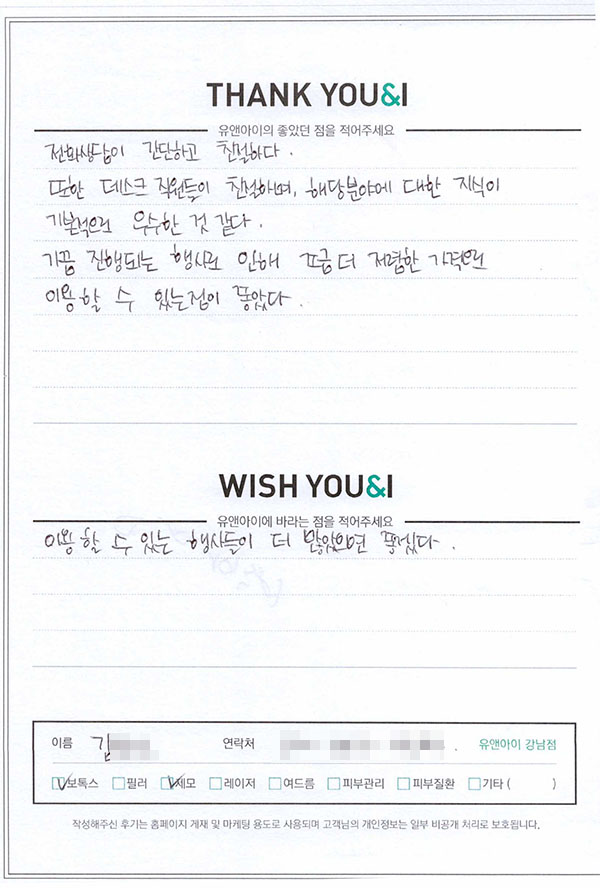 THANK YOU&I
유앤아이의 좋았던 점을 적어주세요
전화상담이 간단하고 친절하다.
또한 데스크 직원들이 친절하며, 해당분야에 대한 지식이
기본적으로 우수한 것 같다.
가끔 진행되는 행사로 인해 조금 더 저렴한 가격으로
이용할 수 있는점이 좋았다.
WISH YOU&I
유앤아이에 바라는 점을 적어주세요
이용할 수 있는 행사들이 더 많았으면 좋겠다.
이름 김 연락처 유앤아이 강남점
보톡스 필러 제모 레이저 여드름 피부관리 피부질환 기타 ( )
작성해주신 후기는 홈페이지 게재 및 마케팅 용도로 사용되며 고객님의 개인정보는 일부 비공개 처리로 보호됩니다.